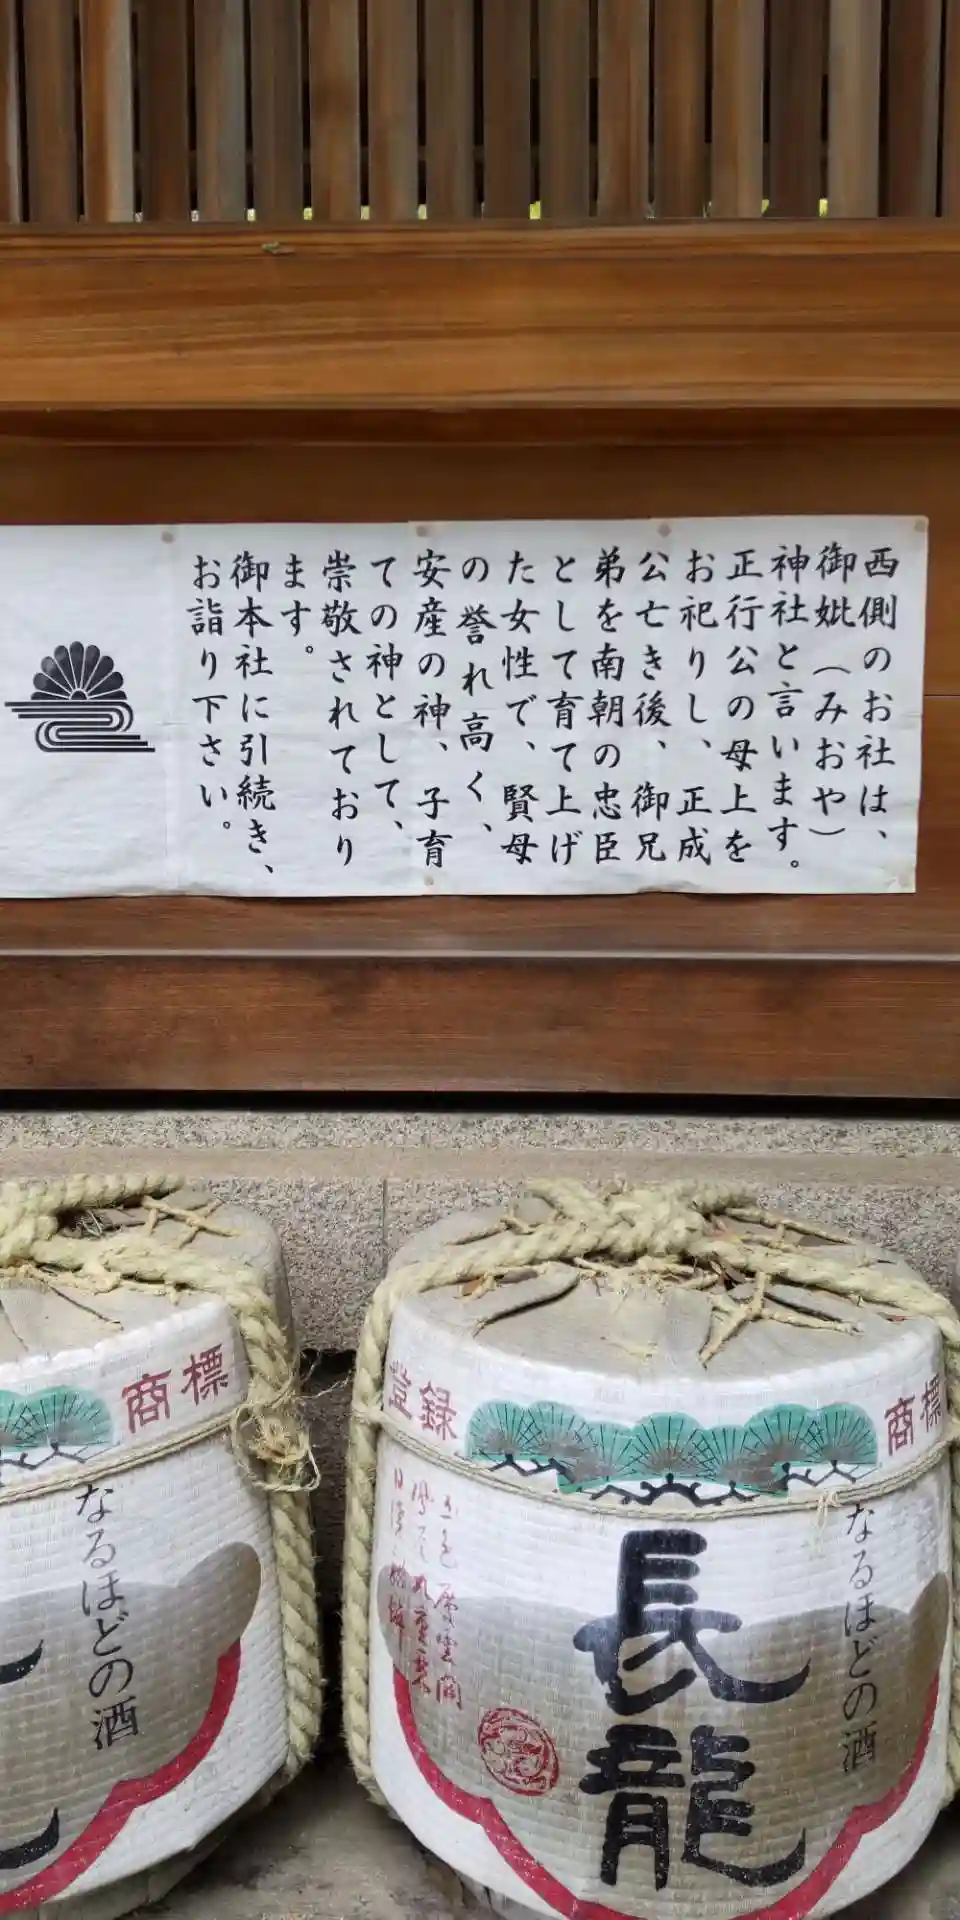 西側のお社は、
御妣（みおや）
神社と言います。
正行公の母上を
お祀りし、正成
公亡き後、御兄
弟を南朝の忠臣
として育て上げ
た女性で、賢母
の誉れ高く、
安産の神、子育
ての神として、
崇敬されており
ます。
御本社に引続き、
お詣り下さい。
商標
なるほどの酒
登録
商標
長龍
なるほどの酒